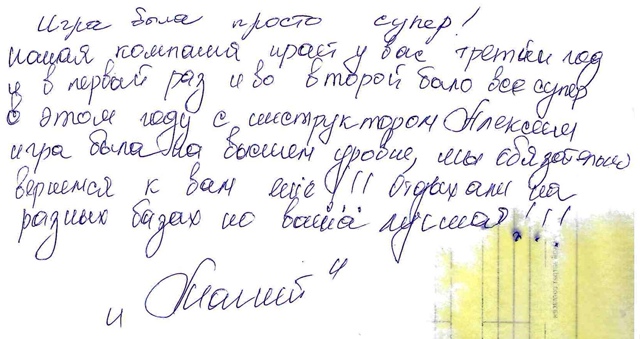 Игра была просто супер!
наша компания играет у вас третий год
и в первый раз и во второй было все супер
в этом году с инструктором Алексеем
игра была на высшем уровне, мы обязательно
вернемся к вам еще!!! Отдыхали на
разных базах но ваша лучшая!!!